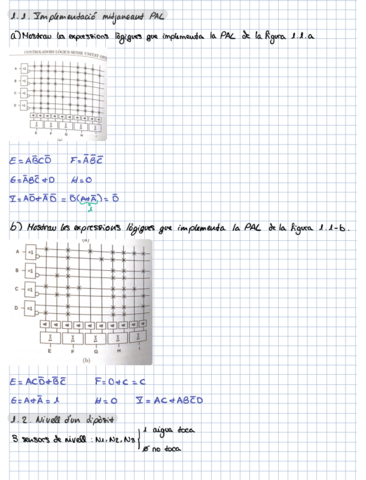 1.1. Implementació mitjançant PAL
a) Mostrau les expressions lògiques que implementa la PAL de la figura 1.1.a
A
B
C
D
E F G H I
(a)
E = AB̄CD̄ F = ĀB̄C̄
G = ĀB̄C̄ + D H = 0
I = AD̄ + ĀD̄ = D̄(A+Ā) = D̄
1
b) Mostrau les expressions lògiques que implementa la PAL de la figura 1.1-b.
(a)
A
B
C
D
E F G H I
(b)
E = ACD̄ + B̄C̄ F = 0 + C = C
G = A + Ā = 1 H = 0 I = AC + AB̄C̄D
1.2. Nivell d'un dipòsit
3 sensors de nivell : N1, N2, N3 { 1 aigua toca
0 no toca